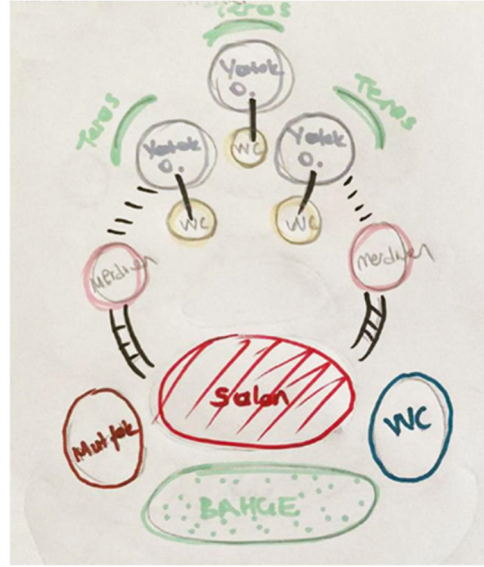 Teras
Yatak
O.
Teras
Teras
WC
Yatak
O.
Yatak
O.
WC
WC
Merdiven
merdiven
Salon
Mutfak
WC
BAHÇE